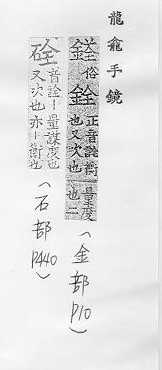 龍龕手鏡
銓正音詮衡
量度也又次也二
(金部
P10)
硂
音詮量謀度也
又次也亦衡也
(石部
P440)